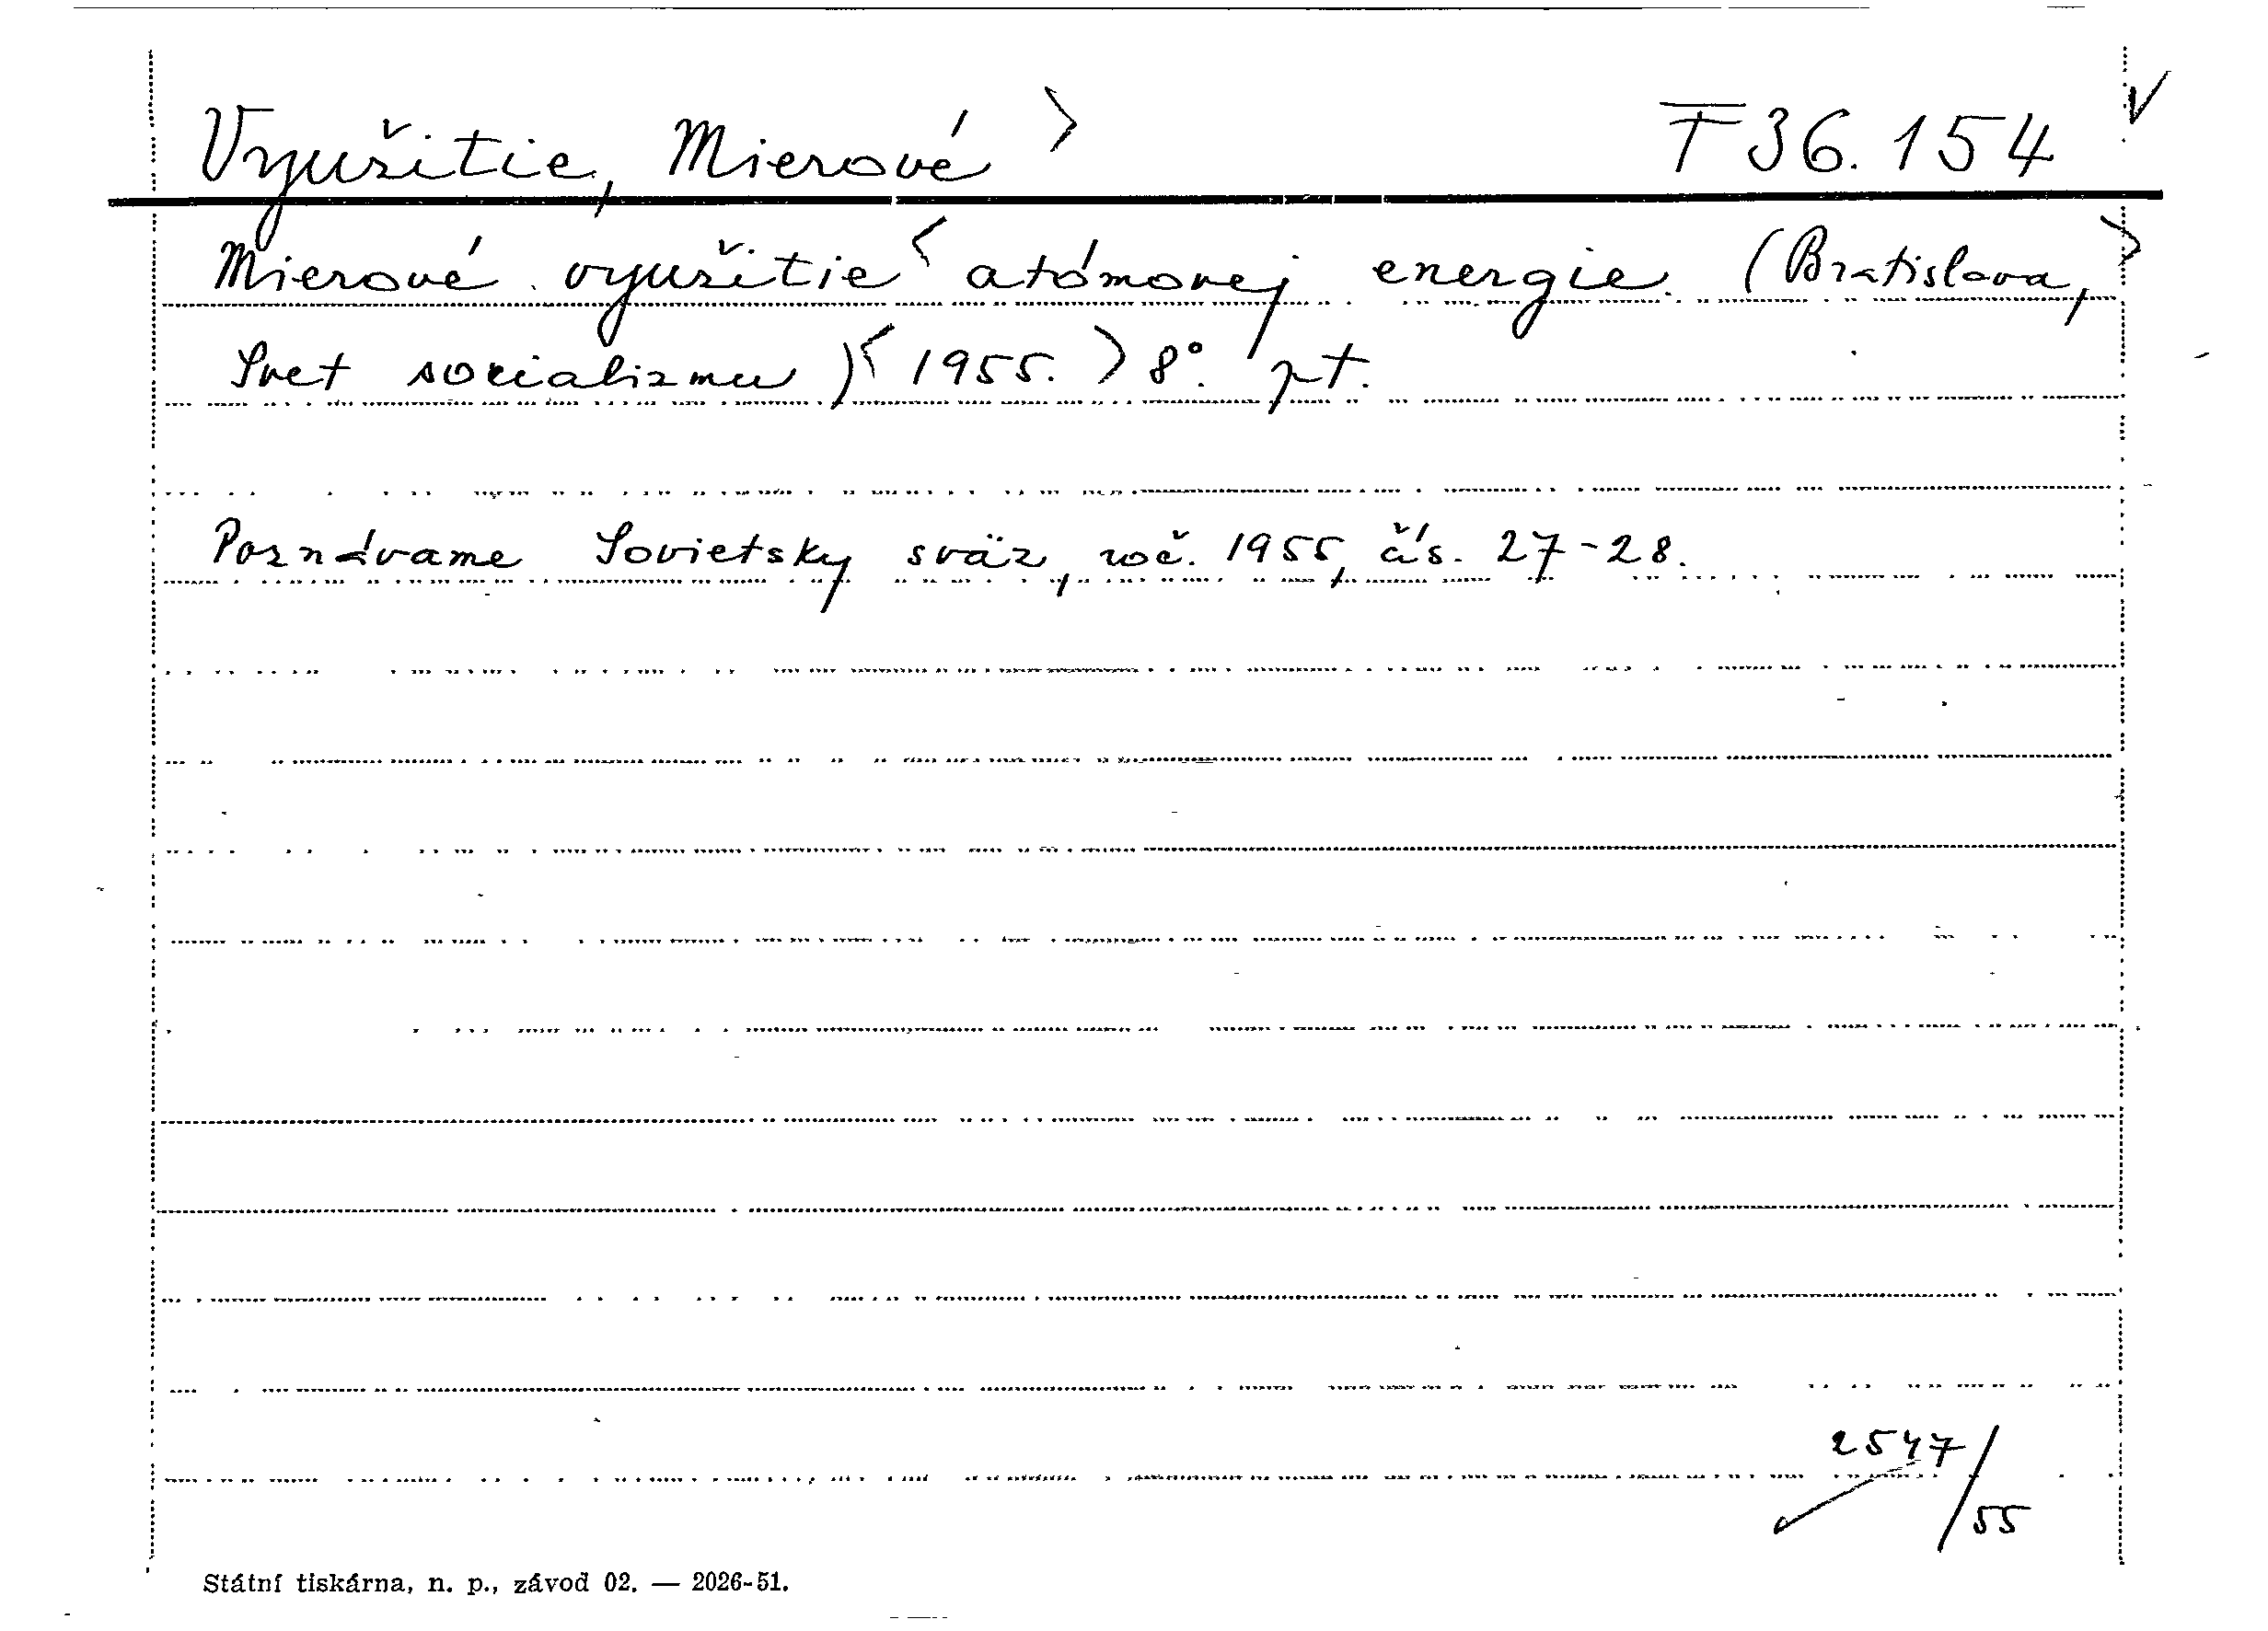 Využitie, Mierové > F 36.154 √
Mierové využitie < atómovej energie. (Bratislava, >
Svet socializmu) < 1955. > 8°. pt.
Poznávame Sovietsky sväz, roč. 1955, čís. 27-28.
2547/55
Státní tiskárna, n. p., závod 02. — 2026-51.